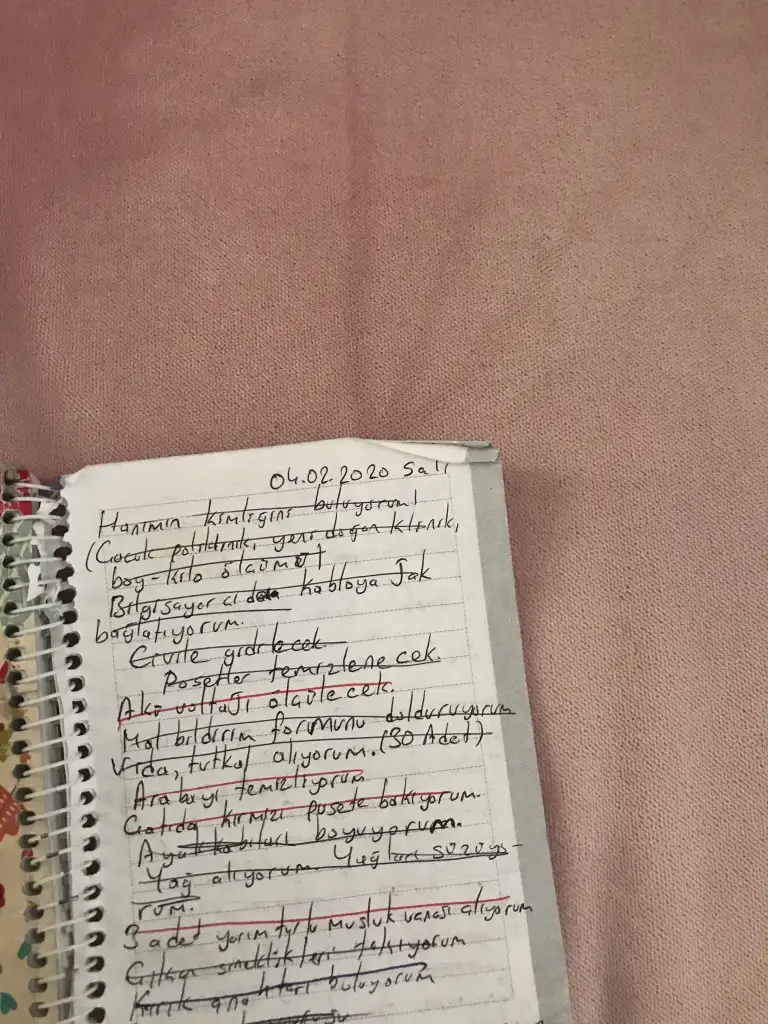 04.02.2020 Salı
Hanımın kimliğini buluyorum!
(Çocuk poliklinik, yeni doğan klinik,
boy-kilo ölçümü)
Bilgisayarcıda kabloya Jak
bağlatıyorum.
Evule gidilecek.
Poşetler temizlenecek.
Akü voltajı ölçülecek.
Mal bildirim formunu dolduruyorum
Vida, tutkal alıyorum. (30 Adet)
Arabayı temizliyorum
Çatıda kırmızı poşete bakıyorum.
Ayakkabıları boyuyorum.
Yağ alıyorum. Yağları süzüyo-
rum.
3 adet yarım turlu musluk vanası alıyorum
Çıkan sineklikleri takıyorum
Kırık anahtarı buluyorum